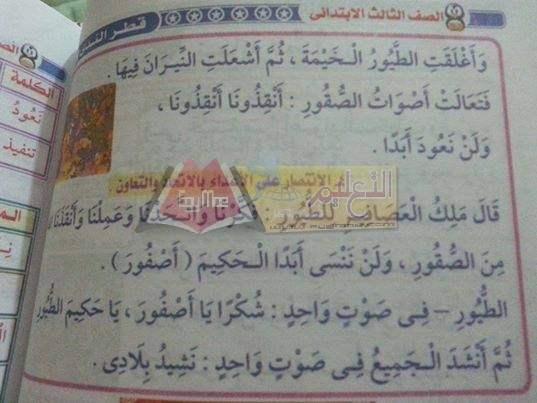 الصف الثالث الابتدائى
قطر الندى
وَأَغْلَقَتِ الطُّيُورُ الْخَيْمَةَ ، ثُمَّ أَشْعَلَتِ النِّيرَانَ فِيهَا .
فَتَعَالَتْ أَصْوَاتُ الصُّقُورِ : أَنْقِذُونَا أَنْقِذُونَا ،
وَلَنْ نَعُودَ أَبَدًا .
الانتصار على الأعداء بالاتحاد والتعاون :
قَالَ مَلِكُ الْعَصَافِيرِ لِلطُّيُورِ : فَكَّرْنَا وَاتَّحَدْنَا وَعَمِلْنَا وَأَنْقَذْنَا
مِنَ الصُّقُورِ ، وَلَنْ نَنْسَى أَبَدًا الْحَكِيمَ ( أَصْفُورَ ) .
الطُّيُورِ – فِى صَوْتٍ وَاحِدٍ : شُكْرًا يَا أَصْفُورَ ، يَا حَكِيمَ الطُّيُورِ
ثُمَّ أَنْشَدَ الْجَمِيعُ فِى صَوْتٍ وَاحِدٍ : نَشِيدُ بِلَادِى .
الكلمة
نَعُودُ
تنفيذ
التعليم